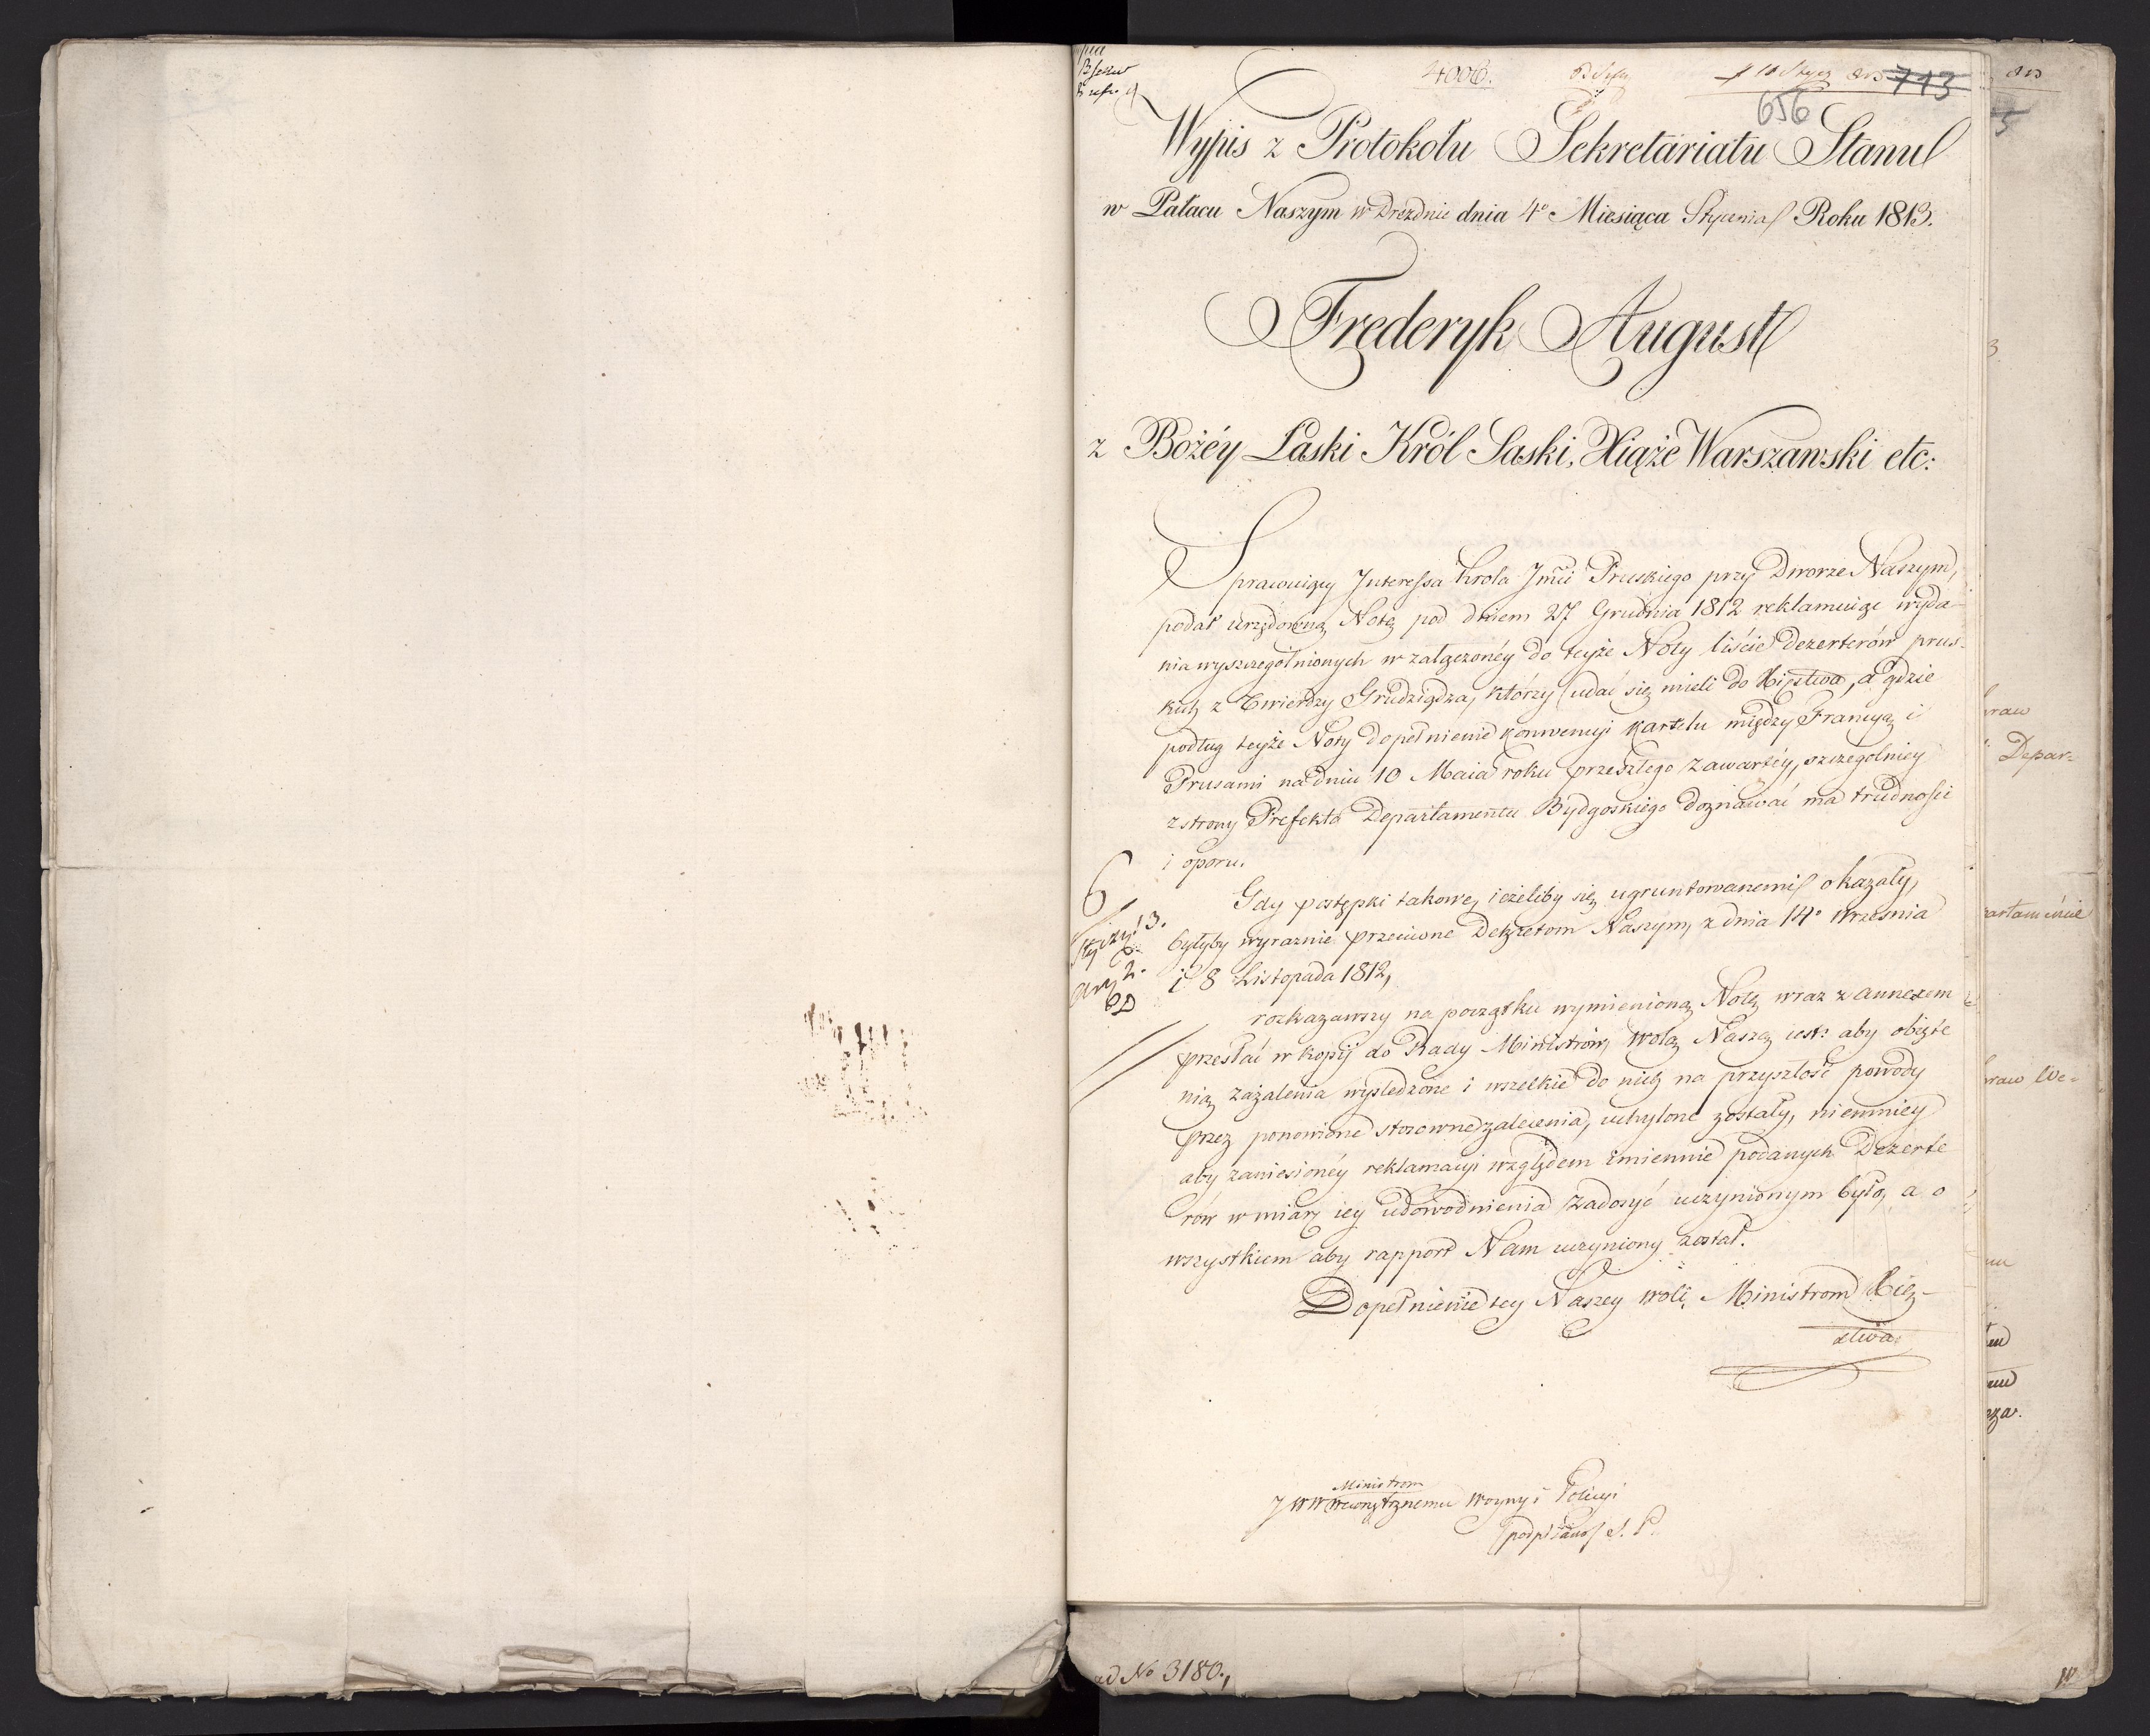 4006.
713
656
Wypis z Protokołu Sekretariatu Stanu
w Pałacu Naszym w Dreźdnie dnia 4º Miesiąca Stycznia Roku 1813.
Frederyk August
z Bożéy Łaski Król Saski, Xiąże Warszawski etc:
Sprawuiący Interessa Krola Jmci Pruskiego przy Dworze Naszym,
podał urzędową Notę pod dniem 27 Grudnia 1812 reklamuiąc wyda-
nia wyszczegolnionych w załączonéy do teyże Noty liście Dezerterów prus-
kich z Twierdzy Grudziądza, którzy udać się mieli do Xięstwa, a gdzie
podług teyże Noty dopełnienie konwencyi kartelu między Francyą i
Prusami na dniu 10 Maia roku przeszłego zawartéy, szczegolniey
z strony Prefekta Departamentu Bydgoskiego doznawać ma trudności
i oporu.
Gdy postępki takowe, ieżeliby się ugruntowanemi okazały,
byłyby wyraznie przeciwne Dekretom Naszym, z dnia 14º Września
i 8 Listopada 1812,
rozkazawszy na początku wymienioną Notę wraz z annexem
przesłać w kopij do Rady Ministrów, wolą Naszą iest: aby obięte
nią zażalenia wysledzone i wszelkie do nich na przyszłość powody
przez ponowione stosowne zalecenia, uchylone zostały, niemniey
aby zaniesionéy reklamacyi względem imiennie podanych Dezerte
rów w miarę iey udowodnienia zadosyć uczynionym było, a o
wszystkiem aby rapport Nam uczyniony został.
Dopełnienie tey Naszey woli, Ministrom Xię-
stwa
Ministrom
JWW Wewnętrznemu Woyny i Policyi
podpisano S. P.
ad No 3180.,